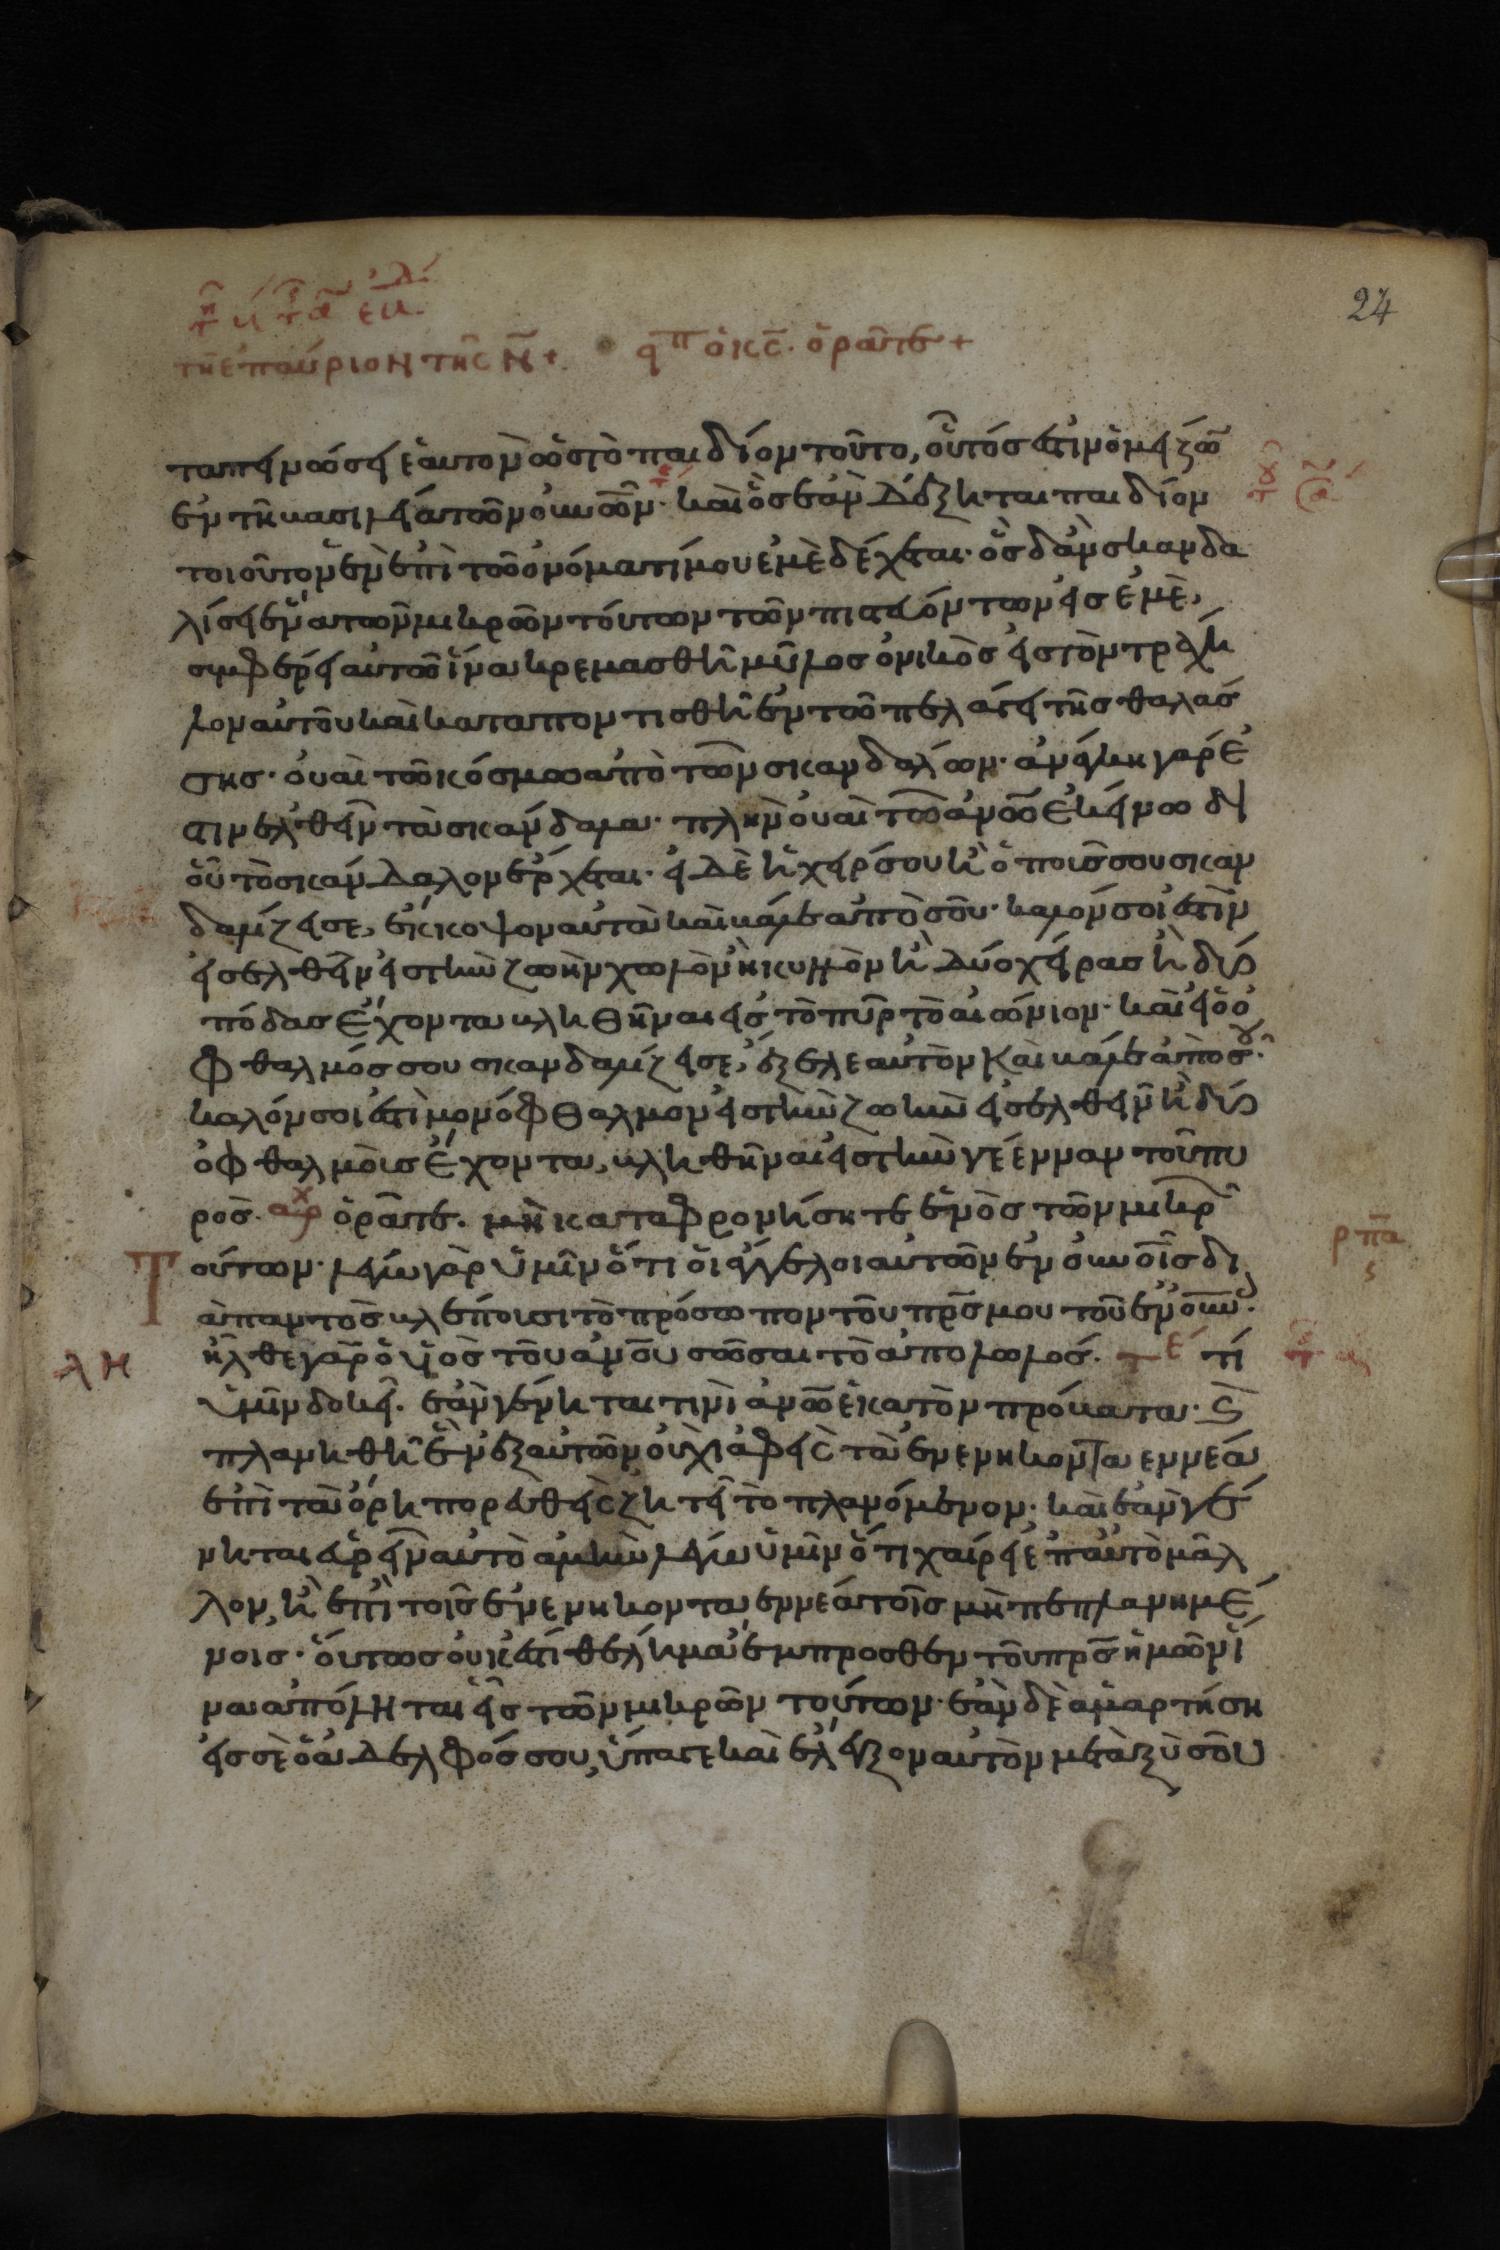 24
τῆ ἐπαύριον τῆς Ν + εἶπεν ὁ κς. ὁρᾶτε +
ταπεινώσει ἑαυτὸν ὡς τὸ παιδίον τοῦτο, οὗτός ἐστιν ὁ μείζων
ἐν τῆ βασιλείᾳ τῶν οὐνῶν. καὶ ὃς ἐὰν δέξηται παιδίον
τοιοῦτον ἓν ἐπὶ τῶ ὀνόματί μου ἐμὲ δέχεται. ὃς δ' ἂν σκανδα
λίσει ἕνα τῶν μικρῶν τούτων τῶν πιστευόντων εἰς ἐμὲ,
συμφέρει αὐτῶ ἵνα κρεμασθῆ μῦλος ὀνικὸς εἰς τὸν τράχη
λον αὐτοῦ καὶ καταποντισθῆ ἐν τῶ πελάγει τῆς θαλάσ
σης. οὐαὶ τῶ κόσμω ἀπὸ τῶν σκανδάλων. ἀνάγκη γάρ ἐ
στιν ἐλθεῖν τὰ σκάνδαλα. πλὴν οὐαὶ τῶ ἀνῶ ἐκείνω δι
οὗ τὸ σκάνδαλον ἔρχεται. εἰ δὲ ἡ χείρ σου ἢ ὁ ποῦς σου σκαν
δαλίζει σε, ἔκκοψον αὐτὰ καὶ βάλε ἀπὸ σοῦ. καλόν σοί ἐστιν
εἰσελθεῖν εἰς τὴν ζωὴν χωλὸν ἢ κυλλὸν ἢ δύο χείρας ἢ δύο
πόδας ἔχοντα βληθῆναι εἰς τὸ πῦρ τὸ αἰώνιον. καὶ εἰ ὁ ὀ
φθαλμός σου σκανδαλίζει σε, ἔξελε αὐτὸν καὶ βάλε ἀπὸ σοῦ.
καλόν σοί ἐστι μονόφθαλμον εἰς τὴν ζωὴν εἰσελθεῖν ἢ δύο
ὀφθαλμοὺς ἔχοντα, βληθῆναι εἰς τὴν γέενναν τοῦ πυ
ρός. αρχ ὁρᾶτε. μὴ καταφρονήσητε ἑνὸς τῶν μικρῶν
Τούτων. λέγω γὰρ ὑμῖν ὅτι οἱ ἄγγελοι αὐτῶν ἐν οὐνοῖς δι
ὰ παντὸς βλέπουσι τὸ πρόσωπον τοῦ πρς μου τοῦ ἐν οὐνοῖς.
ἦλθε γὰρ ὁ υἱὸς τοῦ ἀνου σῶσαι τὸ ἀπολωλός. τέ τί
ΛΗ
ὑμῖν δοκεῖ. ἐὰν γένηται τινὶ ἀνῶ ἑκατὸν πρόβατα. καὶ
πλανηθῆ ἓν ἐξ αὐτῶν οὐχὶ ἀφεὶς τὰ ἐνενήκονταεννέα
ἐπὶ τὰ ὄρη πορευθεὶς ζητεῖ τὸ πλανόμενον. καὶ ἐὰν γέ
νηται εὑρεῖν αὐτὸ ἀμὴν λέγω ὑμῖν ὅτι χαίρει ἐπ αὐτὸ μᾶλ
λον, ἢ ἐπὶ τοῖς ἐνενήκοντα ἐννέα τοῖς μὴ πεπλανημέ
νοις. οὕτως οὐκ ἔστι θέλημα ἔμπροσθεν τοῦ πρς ἡμῶν ἵ
να ἀπόληται εἷς τῶν μικρῶν τούτων. ἐὰν δὲ ἁμαρτήση
εἰς σὲ ὁ ἀδελφός σου, ὕπαγε καὶ ἔλεγξον αὐτὸν μεταξὺ σοῦ